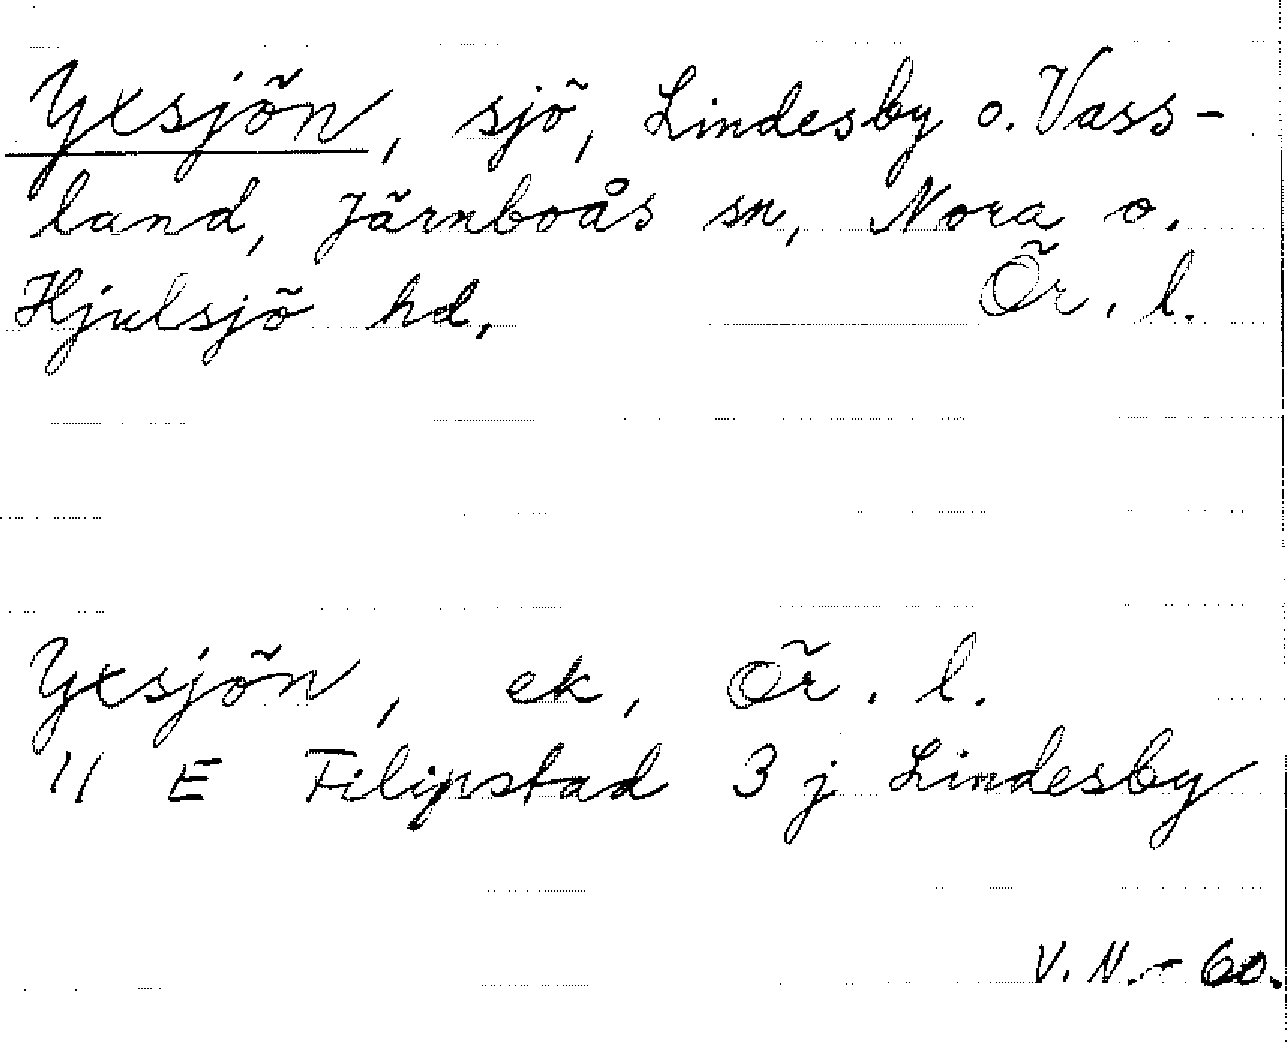 Yxsjön, sjö, Lindesby o. Vass-
land, Järnboås sn, Nora o.
Hjulsjö hd, Ör. l.
Yxsjön, ek, Ör. l.
11 E Filipstad 3 j Lindesby
V. N. - 60.